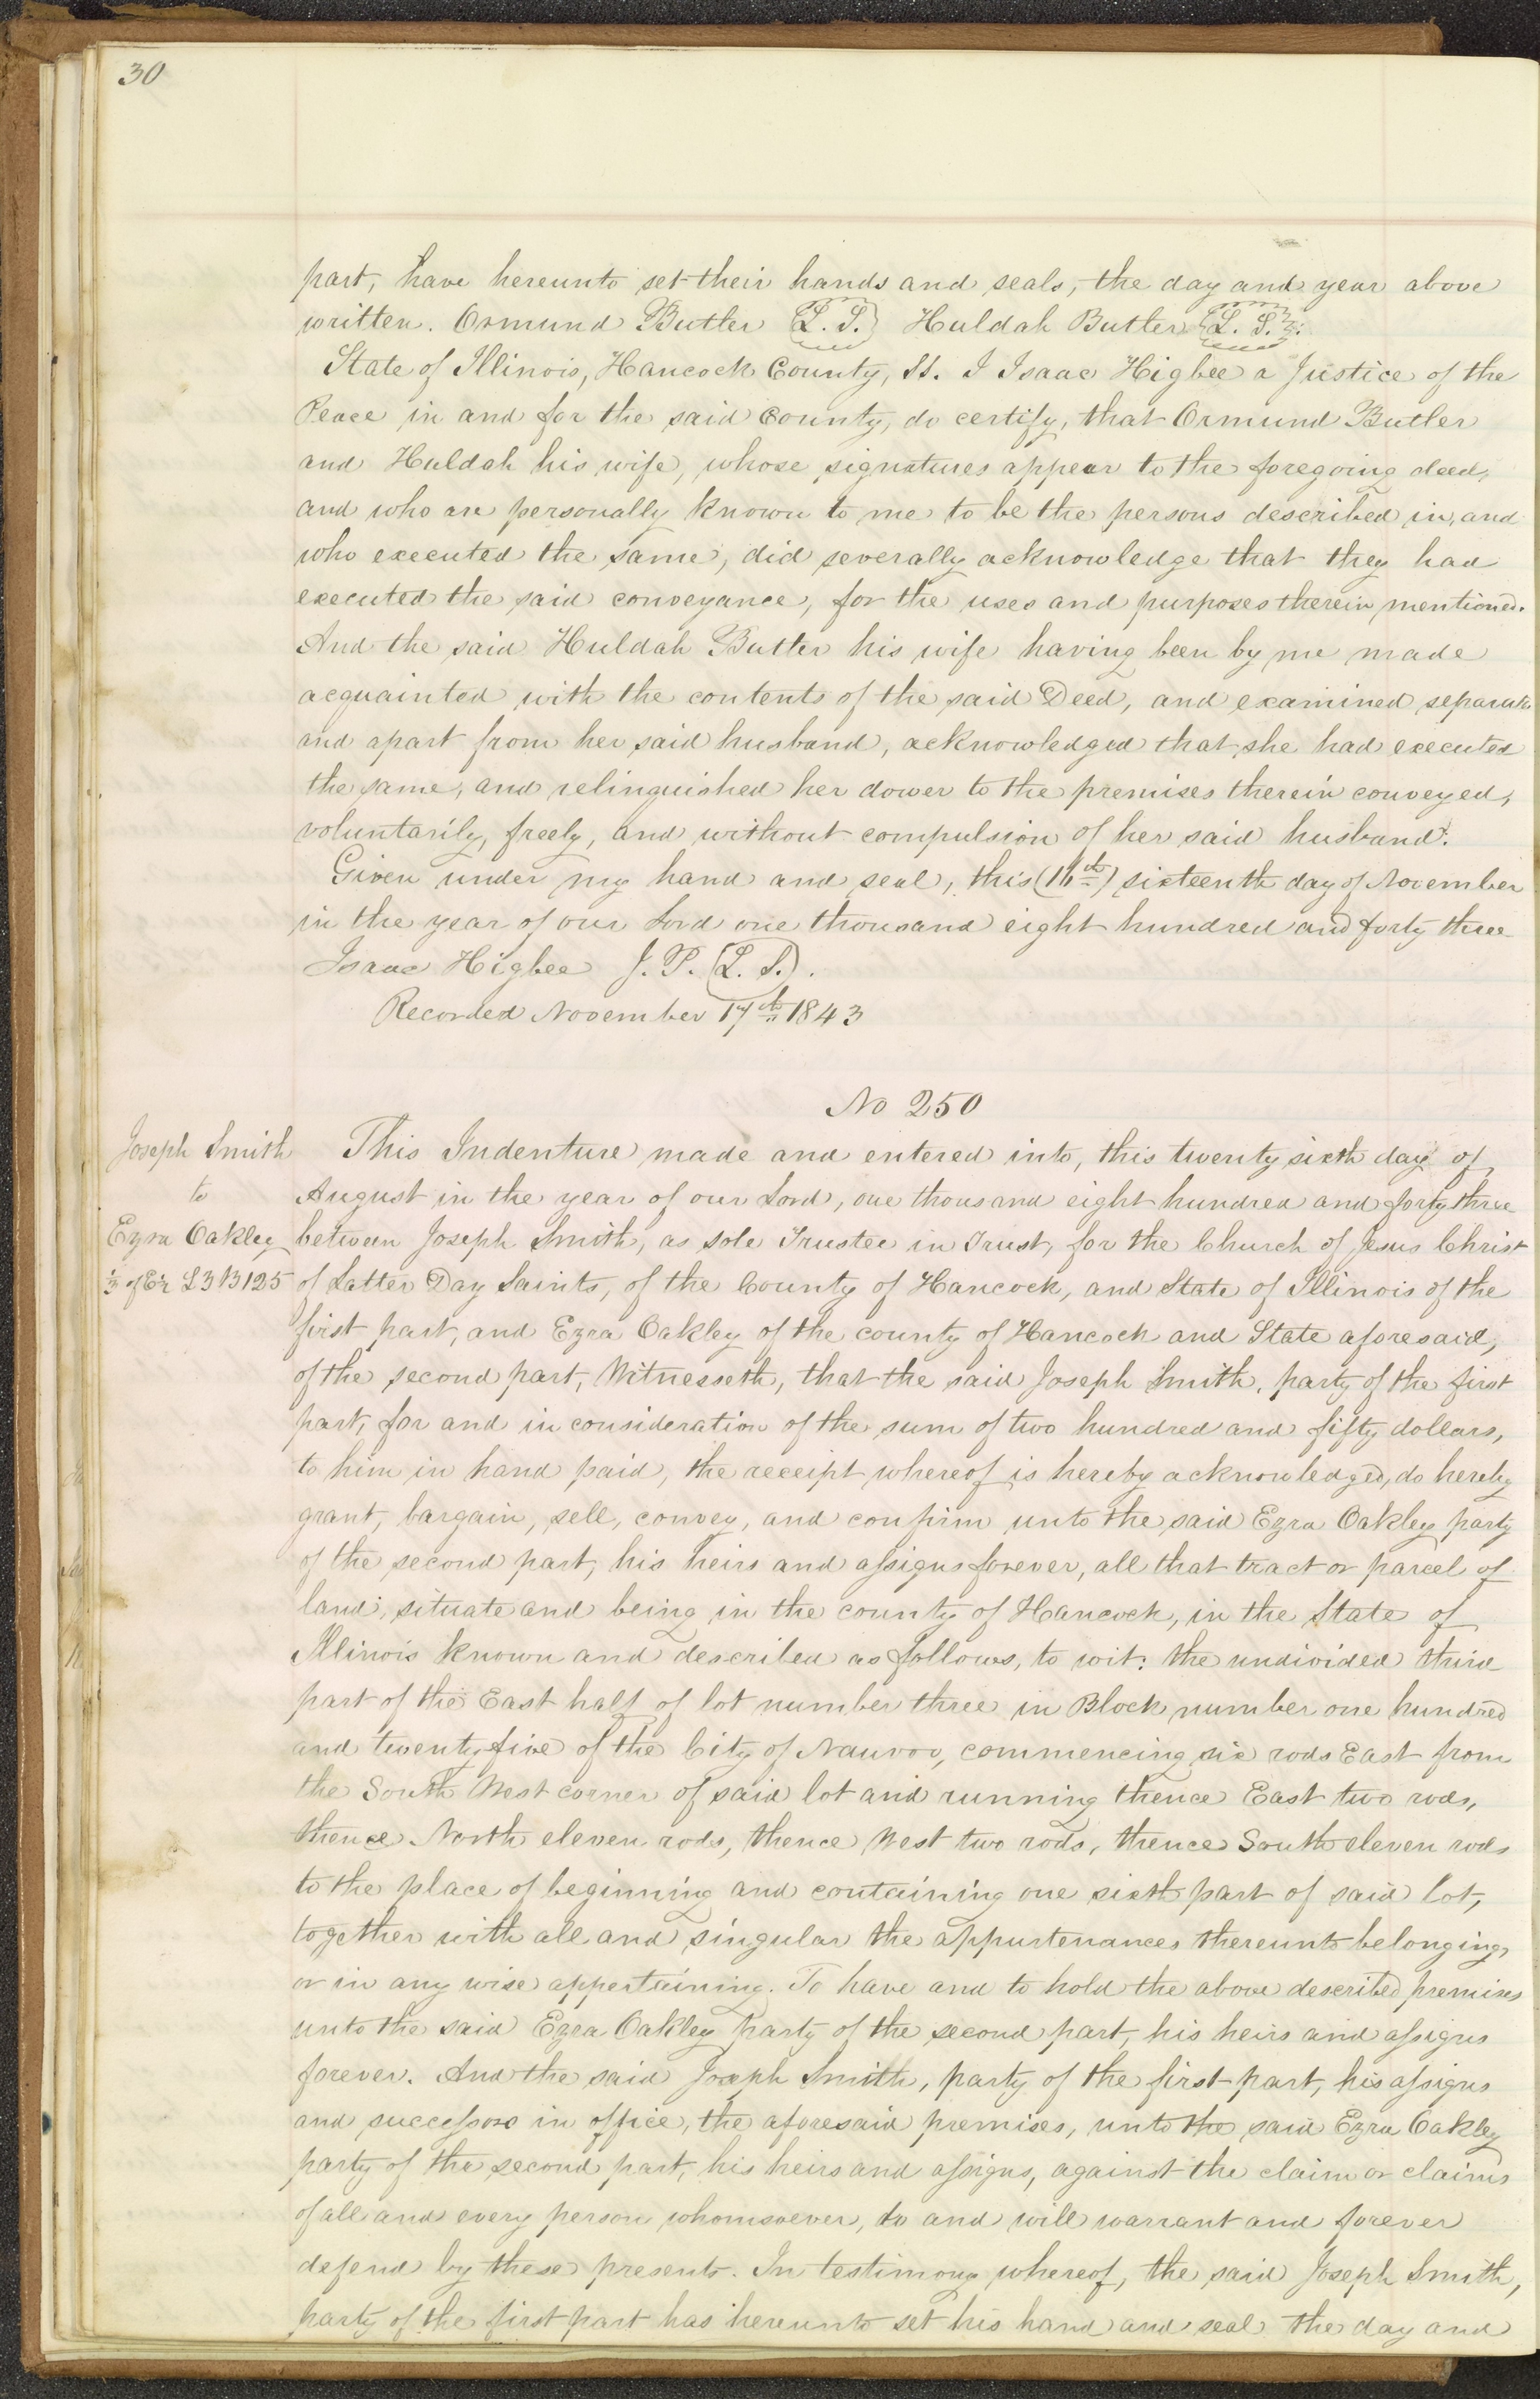 30
part, have hereunto set their hands and seals, the day and year above
written. Ormund Butler (L. S.) Huldah Butler (L. S.).
State of Illinois, Hancock County, SS. I Isaac Higbee a Justice of the
Peace in and for the said County, do certify, that Ormund Butler
and Huldah his wife, whose signatures appear to the foregoing deed,
and who are personally known to me to be the persons described in, and
who executed the same, did severally acknowledge that they had
executed the said conveyance, for the uses and purposes therein mentioned.
And the said Huldah Butler his wife having been by me made
acquainted with the contents of the said Deed, and examined separate
and apart from her said husband, acknowledged that she had executed
the same, and relinquished her dower to the premises therein conveyed,
voluntarily, freely, and without compulsion of her said husband.
Given under my hand and seal, this (16th) sixteenth day of November
in the year of our Lord one thousand eight hundred and forty three
Isaac Higbee J. P. (L. S.).
Recorded November 17th 1843
No 250
Joseph Smith
to
Ezra Oakley
⅓ of E½ L 3 B 125
This Indenture made and entered into, this twenty sixth day of
August in the year of our Lord, one thousand eight hundred and forty three
between Joseph Smith, as sole Trustee in Trust, for the Church of Jesus Christ
of Latter Day Saints, of the County of Hancock, and State of Illinois of the
first part, and Ezra Oakley of the county of Hancock and State aforesaid,
of the second part, Witnesseth, that the said Joseph Smith, party of the first
part, for and in consideration of the sum of two hundred and fifty dollars,
to him in hand paid, the receipt whereof is hereby acknowledged, do hereby
grant, bargain, sell, convey, and confirm unto the said Ezra Oakley party
of the second part, his heirs and assigns forever, all that tract or parcel of
land, situate and being in the county of Hancock, in the State of
Illinois known and described as follows, to wit: the undivided third
part of the East half of lot number three in Block number one hundred
and twenty five of the City of Nauvoo, commencing six rods East from
the South West corner of said lot and running thence East two rods,
thence North eleven rods, thence West two rods, thence South eleven rods
to the place of beginning and containing one sixth part of said lot,
together with all and singular the appurtenances thereunto belonging,
or in any wise appertaining. To have and to hold the above described premises
unto the said Ezra Oakley party of the second part, his heirs and assigns
forever. And the said Joseph Smith, party of the first part, his assigns
and successors in office, the aforesaid premises, unto the said Ezra Oakley
party of the second part, his heirs and assigns, against the claim or claims
of all and every person whomsoever, do and will warrant and forever
defend by these presents. In testimony whereof, the said Joseph Smith,
party of the first part has hereunto set his hand and seal the day and